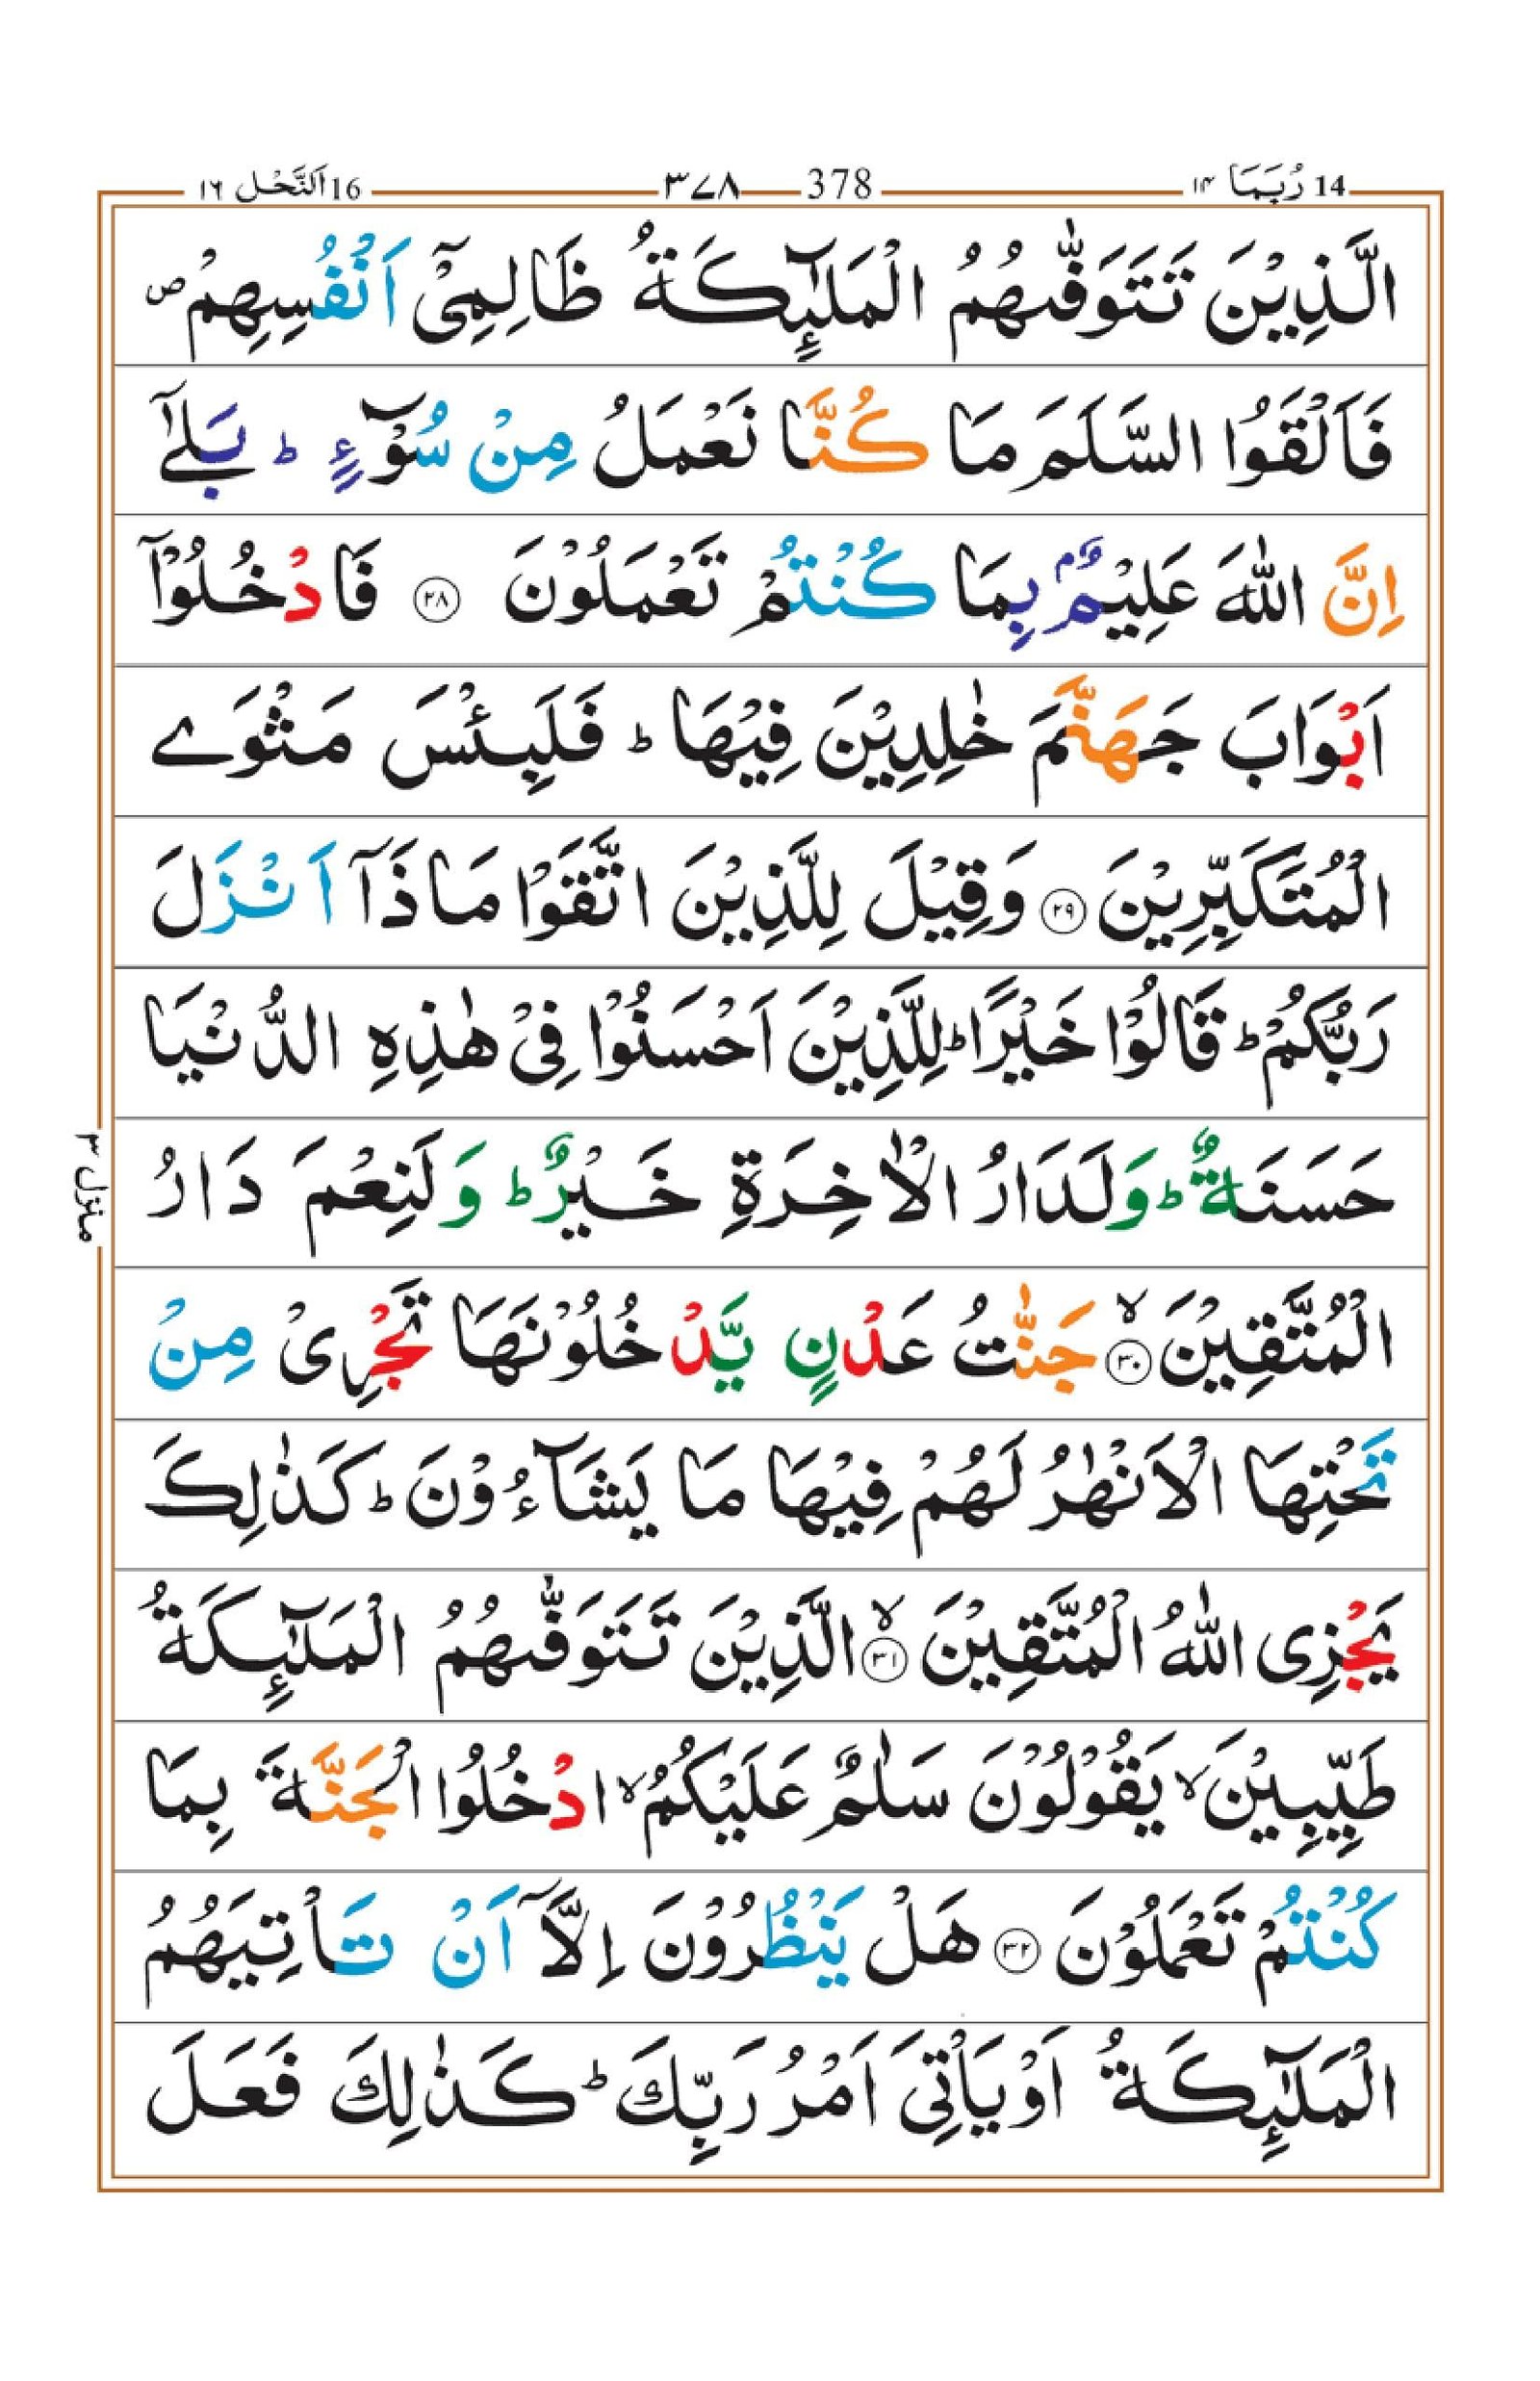 14 رُبَمَا ۱۴ 378 ۳۷۸ 16 اَلنَّحْل ۱۶
الَّذِيْنَ تَتَوَفّٰىهُمُ الْمَلٰٓئِكَةُ ظَالِمِىْٓ اَنْفُسِهِمْ ص
فَاَلْقَوُا السَّلَمَ مَا كُنَّا نَعْمَلُ مِنْ سُوْٓءٍ ؕ بَلٰٓى
اِنَّ اللّٰهَ عَلِيْمٌۢ بِمَا كُنْتُمْ تَعْمَلُوْنَ ۲۸ فَادْخُلُوْٓا
اَبْوَابَ جَهَنَّمَ خٰلِدِيْنَ فِيْهَا ؕ فَلَبِئْسَ مَثْوَے
الْمُتَكَبِّرِيْنَ ۲۹ وَقِيْلَ لِلَّذِيْنَ اتَّقَوْا مَاذَآ اَنْزَلَ
رَبُّكُمْ ؕ قَالُوْا خَيْرًا ؕ لِلَّذِيْنَ اَحْسَنُوْا فِىْ هٰذِهِ الدُّنْيَا
حَسَنَةٌ ؕ وَلَدَارُ الْاٰخِرَةِ خَيْرٌ ؕ وَلَنِعْمَ دَارُ
الْمُتَّقِيْنَ ۙ ۳۰ جَنّٰتُ عَدْنٍ يَّدْخُلُوْنَهَا تَجْرِىْ مِنْ
تَحْتِهَا الْاَنْهٰرُ لَهُمْ فِيْهَا مَا يَشَآءُوْنَ ؕ كَذٰلِكَ
يَجْزِى اللّٰهُ الْمُتَّقِيْنَ ۙ ۳۱ الَّذِيْنَ تَتَوَفّٰىهُمُ الْمَلٰٓئِكَةُ
طَيِّبِيْنَ ۙ يَقُوْلُوْنَ سَلٰمٌ عَلَيْكُمُ ۙ ادْخُلُوا الْجَنَّةَ بِمَا
كُنْتُمْ تَعْمَلُوْنَ ۳۲ هَلْ يَنْظُرُوْنَ اِلَّآ اَنْ تَاْتِيَهُمُ
الْمَلٰٓئِكَةُ اَوْ يَاْتِىَ اَمْرُ رَبِّكَ ؕ كَذٰلِكَ فَعَلَ
منزل ۳